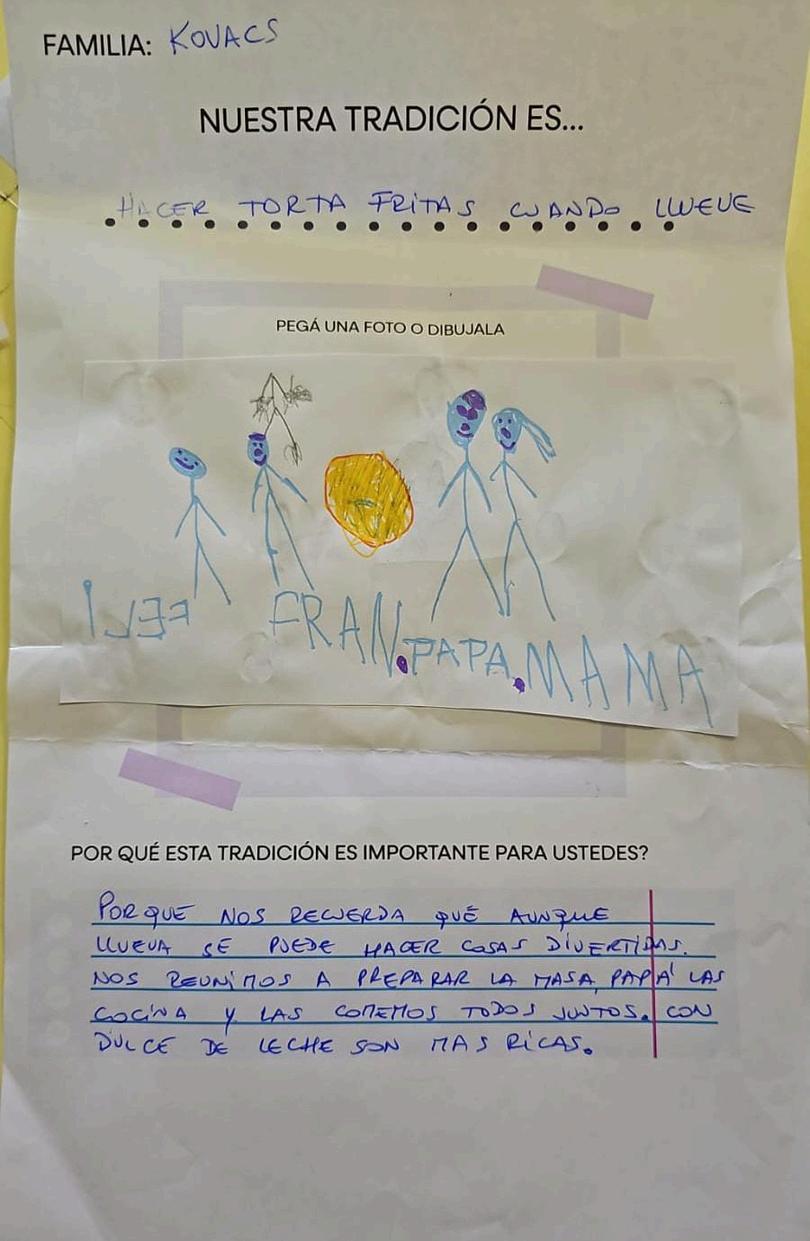 FAMILIA: KOVACS
NUESTRA TRADICIÓN ES...
HACER TORTA FRITAS CUANDO LLUEVE
PEGÁ UNA FOTO O DIBUJALA
FELI FRAN.PAPA.MAMA
POR QUÉ ESTA TRADICIÓN ES IMPORTANTE PARA USTEDES?
PORQUE NOS RECUERDA QUÉ AUNQUE
LLUEVA SE PUEDE HACER COSAS DIVERTIDAS.
NOS REUNIMOS A PREPARAR LA MASA, PAPÁ LAS
COCINA Y LAS COMEMOS TODOS JUNTOS. CON
DULCE DE LECHE SON MAS RICAS.